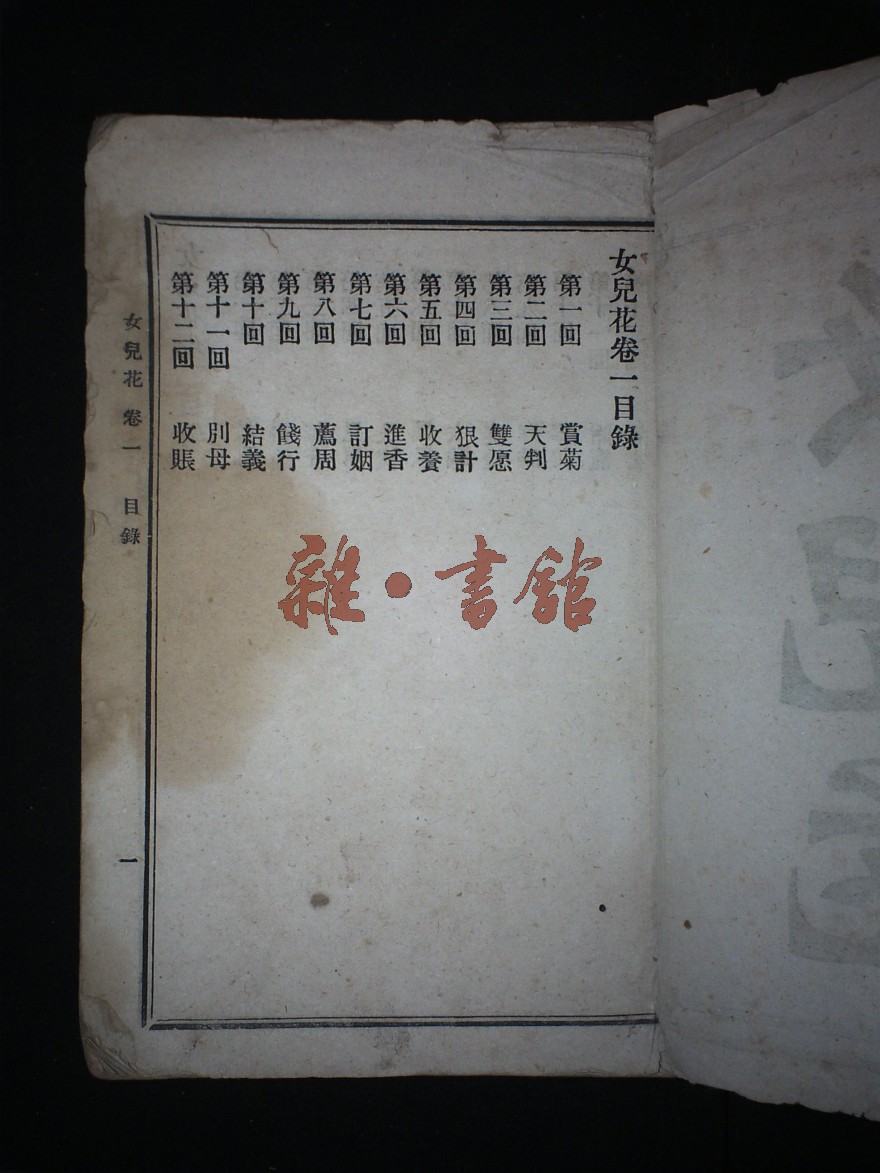 女兒花卷一目錄
第一回 賞菊
第二回 天判
第三回 雙愿
第四回 狠計
第五回 收養
第六回 進香
第七回 訂姻
第八回 薦周
第九回 餞行
第十回 結義
第十一回 別母
第十二回 收賬
女兒花 卷一 目錄 一
雜·書館